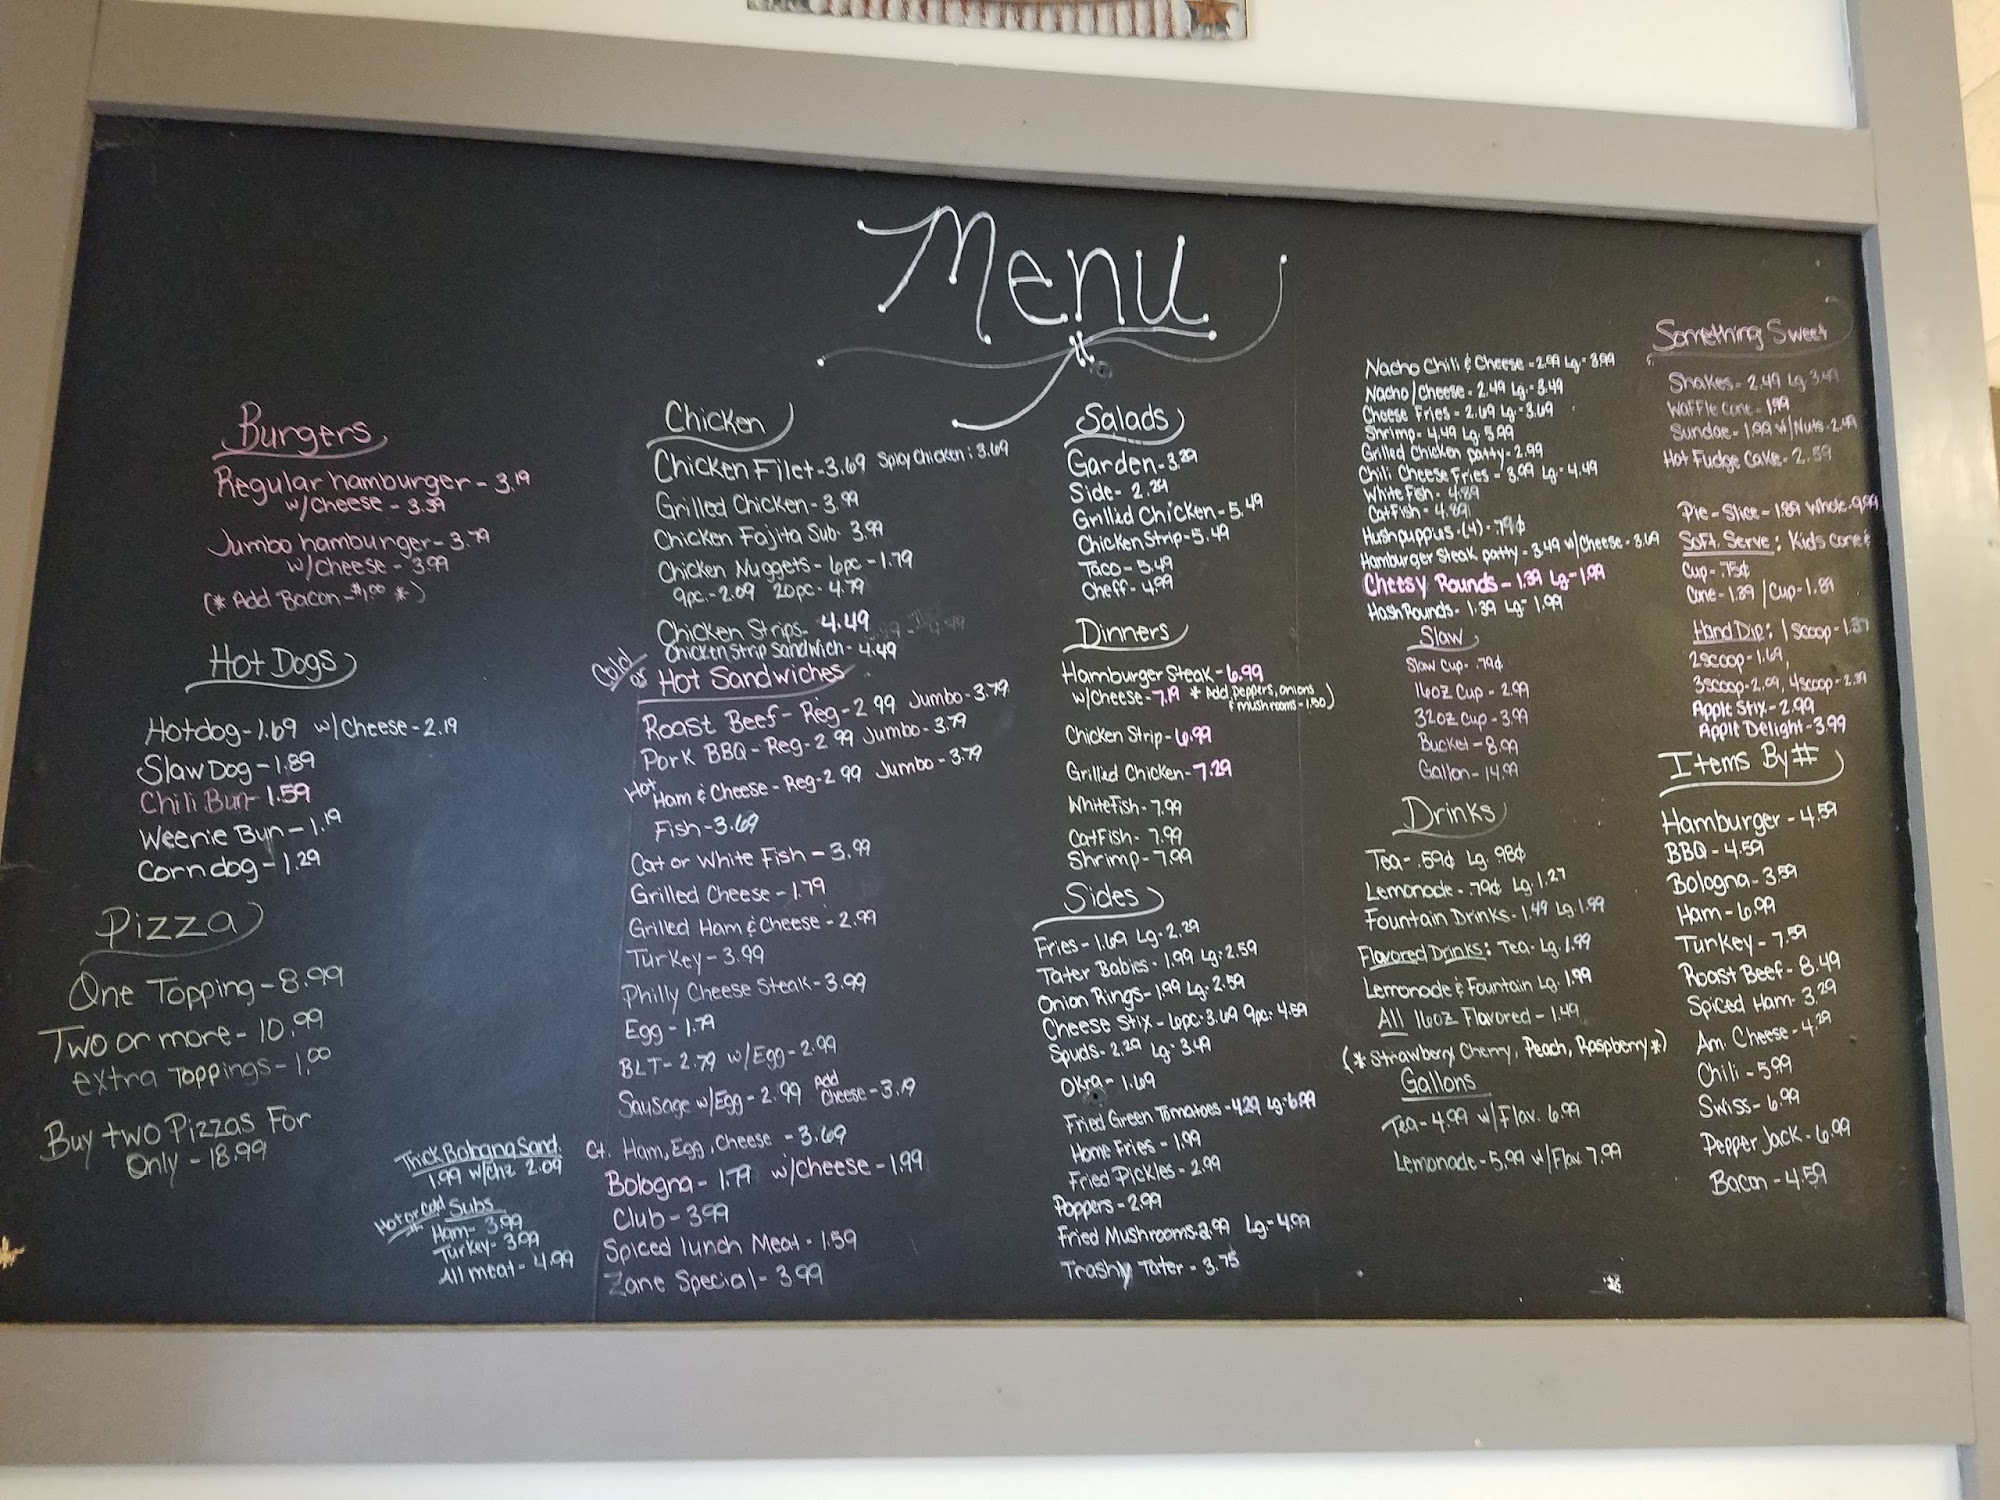 Menu
Burgers
Regular hamburger - 3.19
w/Cheese - 3.39
Jumbo hamburger - 3.79
w/Cheese - 3.99
(* Add Bacon - $1.00 *)
Hot Dogs
Hotdog - 1.69 w/Cheese - 2.19
Slaw Dog - 1.89
Chili Bun - 1.59
Weenie Bun - 1.19
Corn dog - 1.29
Pizza
One Topping - 8.99
Two or more - 10.99
extra Toppings - 1.00
Buy two Pizzas For
Only - 18.99
Thick Bologna Sand.
1.99 w/chz 2.09
Hot or Cold Subs
Ham - 3.99
Turkey - 3.99
All meat - 4.99
Chicken
Chicken Filet - 3.69 Spicy Chicken: 3.69
Grilled Chicken - 3.99
Chicken Fajita Sub - 3.99
Chicken Nuggets - 6pc - 1.79
9pc. - 2.09 20pc - 4.79
Chicken Strips - 4.49
Chicken Strip Sandwich - 4.49
Cold or Hot Sandwiches
Roast Beef - Reg - 2.99 Jumbo - 3.79
Pork BBQ - Reg - 2.99 Jumbo - 3.79
Hot Ham & Cheese - Reg - 2.99 Jumbo - 3.79
Fish - 3.69
Cat or White Fish - 3.99
Grilled Cheese - 1.79
Grilled Ham & Cheese - 2.99
Turkey - 3.99
Philly Cheese Steak - 3.99
Egg - 1.79
BLT - 2.79 w/Egg - 2.99
Sausage w/Egg - 2.99 Add Cheese - 3.19
Ct. Ham, Egg, Cheese - 3.69
Bologna - 1.79 w/Cheese - 1.99
Club - 3.99
Spiced lunch Meat - 1.59
Zane Special - 3.99
Salads
Garden - 3.29
Side - 2.29
Grilled Chicken - 5.49
Chicken Strip - 5.49
Taco - 5.49
Cheff - 4.99
Dinners
Hamburger Steak - 6.99
w/Cheese - 7.19 * Add, peppers, onions
& mushrooms - 1.50)
Chicken Strip - 6.99
Grilled Chicken - 7.29
WhiteFish - 7.99
CatFish - 7.99
Shrimp - 7.99
Sides
Fries - 1.69 Lg - 2.29
Tater Babies - 1.99 Lg - 2.59
Onion Rings - 1.99 Lg - 2.59
Cheese Stix - 6pc - 3.69 9pc: 4.59
Spuds - 2.29 Lg - 3.49
Okra - 1.69
Fried Green Tomatoes - 4.29 Lg - 6.99
Home Fries - 1.99
Fried Pickles - 2.99
Poppers - 2.99
Fried Mushrooms - 2.99 Lg - 4.99
Trashy Tater - 3.75
Nacho Chili & Cheese - 2.99 Lg - 3.99
Nacho/Cheese - 2.49 Lg - 3.49
Cheese Fries - 2.69 Lg - 3.69
Shrimp - 4.49 Lg 5.99
Grilled Chicken patty - 2.99
Chili Cheese Fries - 3.99 Lg - 4.49
White Fish - 4.89
CatFish - 4.89
Hushpuppies - (4) - .79¢
Hamburger Steak patty - 3.49 w/Cheese - 3.69
Cheesy Rounds - 1.39 Lg - 1.99
Hash Rounds - 1.39 Lg - 1.99
Slaw
Slaw Cup - .79¢
16oz Cup - 2.99
32oz Cup - 3.99
Bucket - 8.99
Gallon - 14.99
Drinks
Tea - .59¢ Lg. 98¢
Lemonade - .79¢ Lg. 1.27
Fountain Drinks - 1.49 Lg 1.99
Flavored Drinks: Tea - Lg. 1.99
Lemonade & Fountain Lg. 1.99
All 16oz Flavored - 1.49
(* Strawberry, Cherry, Peach, Raspberry *)
Gallons
Tea - 4.99 w/Flav. 6.99
Lemonade - 5.99 w/Flav. 7.99
Something Sweet
Shakes - 2.49 Lg 3.49
Waffle Cone - 1.99
Sundae - 1.99 w/Nuts - 2.49
Hot Fudge Cake - 2.59
Pie - Slice - 1.89 Whole - 9.99
Soft. Serve: Kids cone &
Cup - .75¢
Cone - 1.39 / Cup - 1.89
Hand Dip: 1 scoop - 1.39
2 scoop - 1.69,
3 scoop - 2.09, 4 scoop - 2.39
Apple Stix - 2.99
Apple Delight - 3.99
Items By #
Hamburger - 4.59
BBQ - 4.59
Bologna - 3.59
Ham - 6.99
Turkey - 7.59
Roast Beef - 8.49
Spiced Ham - 3.29
Am. Cheese - 4.29
Chili - 5.99
Swiss - 6.99
Pepper Jack - 6.99
Bacon - 4.59